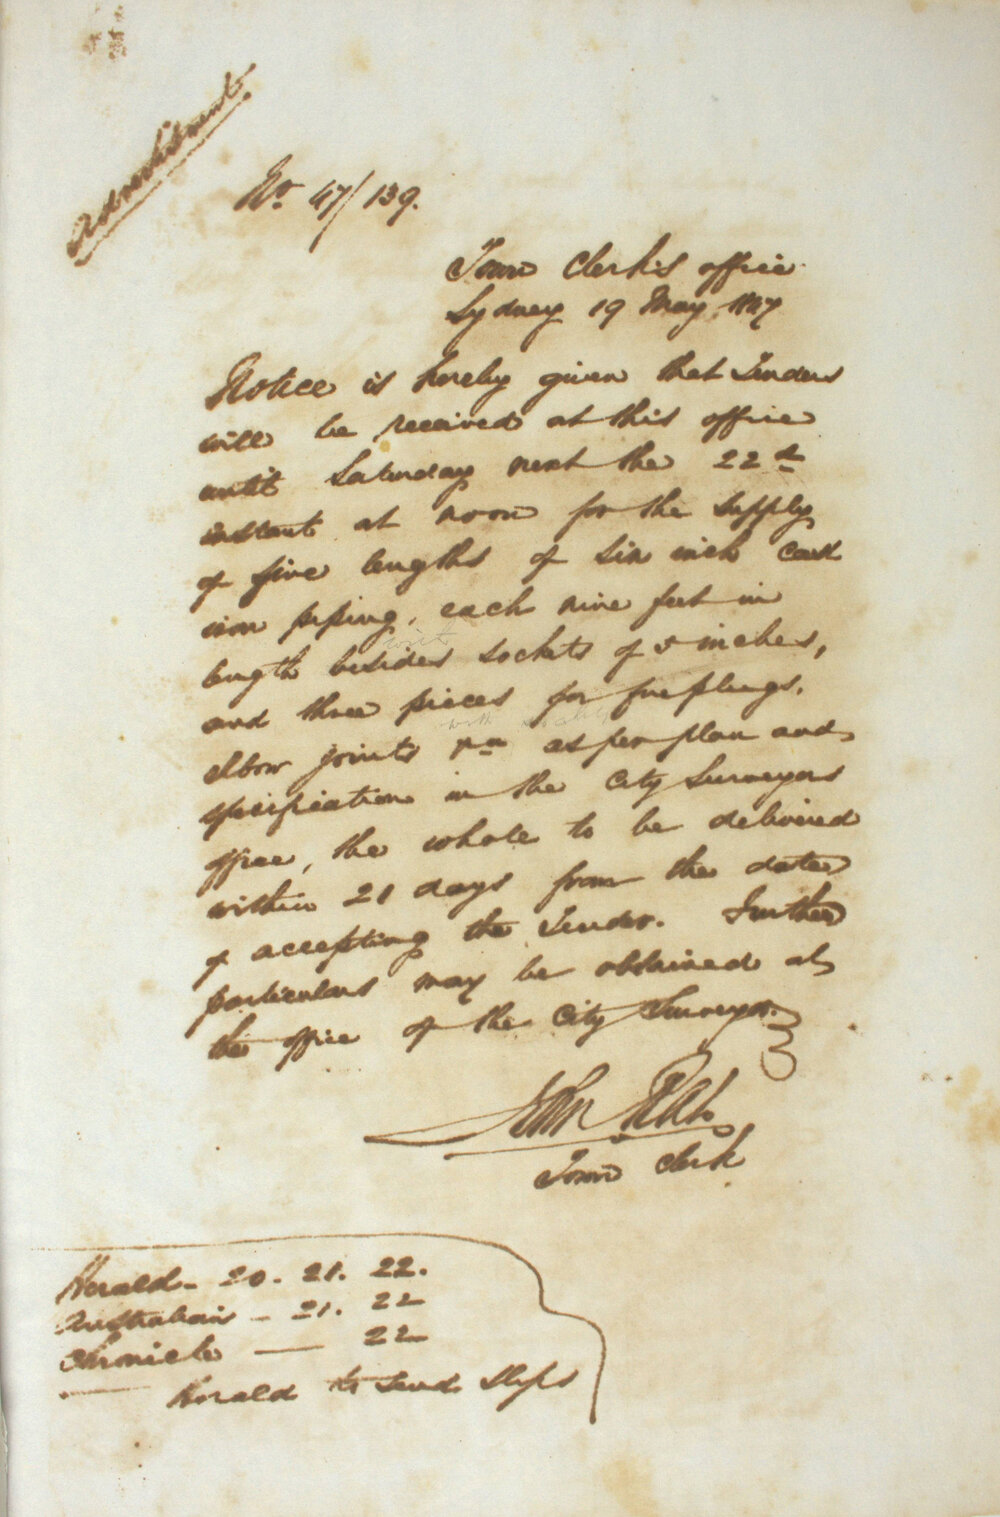 Advertisment.
No. 47/139.
Town Clerk's office
Sydney 19 May 1847
Notice is hereby given that Tenders
will be received at this office
until Saturday next the 22d
instant at noon for the supply
of five lengths of six inch cast
iron piping, each nine feet in
length besides sockets of 5 inches,
and three pieces for fireplugs,
elbow joints &c as per plan and
specification in the City Surveyors
office, the whole to be delivered
within 21 days from the date
of accepting the Tender. Further
particulars may be obtained at
the office of the City Surveyor.
John
Town Clerk
Herald - 20. 21. 22.
Australian - 21. 22
Chronicle — 22
Herald to send slips